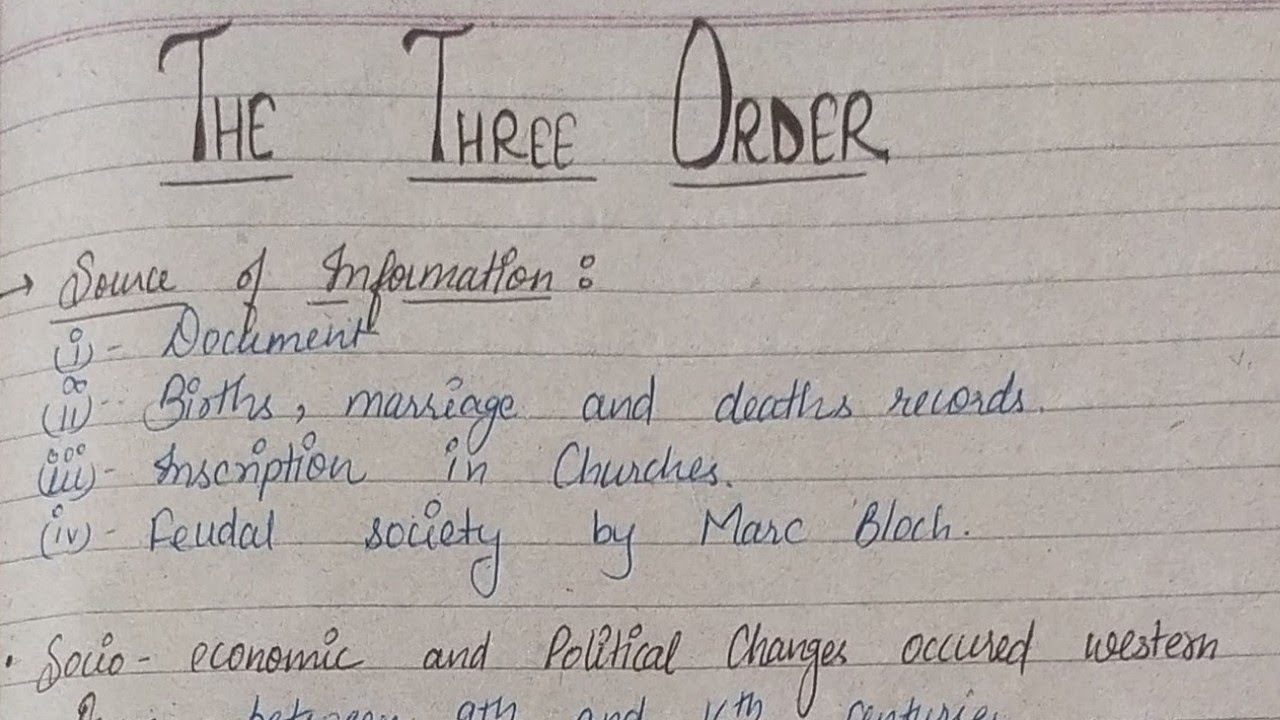 THE THREE ORDER
→ Source of Information :
(i) - Document
(ii) - Births, marriage and deaths records.
(iii) - Inscription in Churches.
(iv) - Feudal society by Marc Bloch.
• Socio - economic and Political Changes occured western
between 9th and centuries